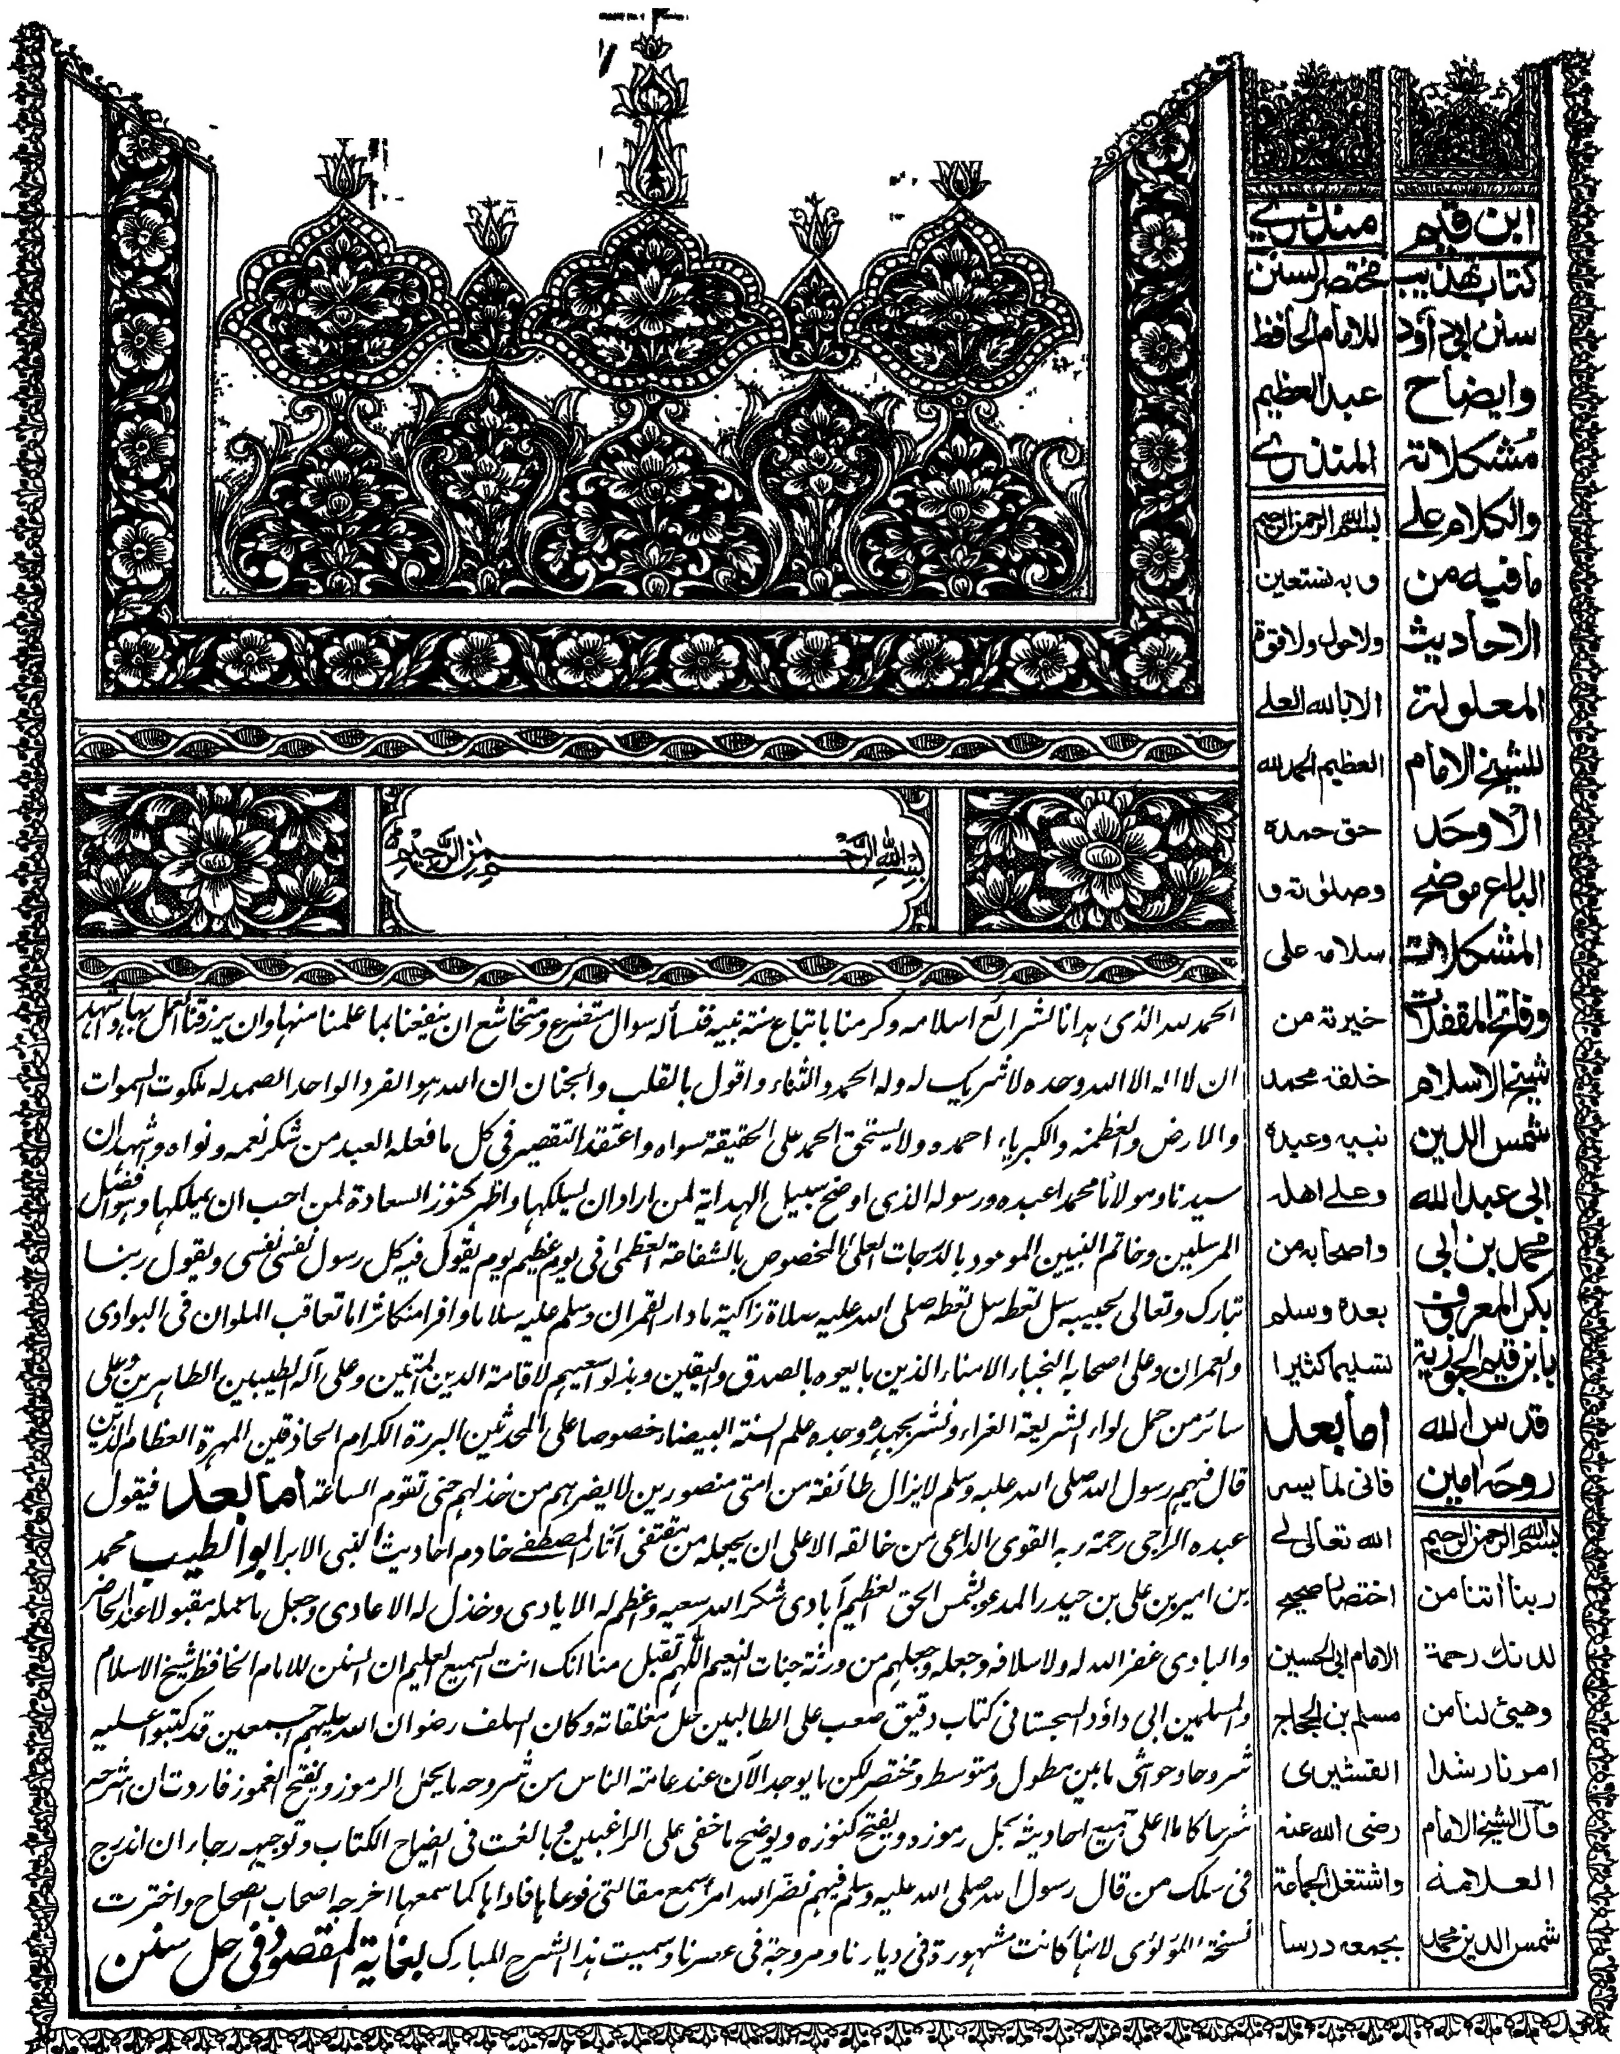 ابن قيم
كتاب تهذيب
سنن ابي داود
وايضاح
مشكلاته
والكلام على
ما فيه من
الاحاديث
المعلولة
للشيخ الامام
الاوحد
البارع موضح
المشكلات
وفاتح المقفلات
شيخ الاسلام
شمس الدين
ابي عبد الله
محمد بن ابي
بكر المعروف
بابن قيم الجوزية
قدس الله
روحه امين
بسم الله الرحمن الرحيم
ربنا اتنا من
لدنك رحمة
وهيئ لنا من
امرنا رشدا
قال الشيخ الامام
العلامة
شمس الدين محمد
منذري
مختصر السنن
للامام الحافظ
عبد العظيم
المنذري
بسم الله الرحمن الرحيم
وبه نستعين
ولا حول ولا قوة
الا بالله العلي
العظيم الحمد لله
حق حمده
وصلوته و
سلامه على
خيرته من
خلقه محمد
نبيه وعبده
وعلى اهله
واصحابه من
بعده وسلم
تسليما كثيرا
اما بعد
فاني لما يسر
الله تعالى لي
اختصار صحيح
الامام ابي الحسين
مسلم بن الحجاج
القشيري
رضي الله عنه
واشتغل الجماعة
بجمعه درسا
بسم الله الرحمن الرحيم
الحمد لله الذي هدانا لشرائع اسلامه وكرمنا باتباع سنة نبيه فنسأله سوال متضرع ومتخاشع ان ينفعنا بما علمنا منها وان يرزقنا العمل بها واشهد
ان لا اله الا الله وحده لا شريك له وله الحمد والثناء واقول بالقلب والجنان ان الله هو الفرد الواحد الصمد له ملكوت السموات
والارض والعظمة والكبرياء احمده ولا يستحق الحمد على الحقيقة سواه واعتقد التقصير في كل ما فعله العبد من شكر نعمه ونواه واشهد ان
سيدنا ومولانا محمدا عبده ورسوله الذي اوضح سبيل الهداية لمن اراد ان يسلكها واظهر كنوز السعادة لمن احب ان يملكها وهو افضل
المرسلين وخاتم النبيين الموعود بالدرجات العلى المخصوص بالشفاعة العظمى في يوم عظيم يوم يقول فيه كل رسول نفسي نفسي ويقول ربنا
تبارك وتعالى لحبيبه سل تعطه سل تعطه صلى الله عليه صلاة زاكية ما دار القمران وسلم عليه سلاما وافرا متكاثرا ما تعاقب الملوان في البوادي
والعمران وعلى اصحابه النجباء الامناء الذين بايعوه بالصدق واليقين وبذلوا سعيهم لاقامة الدين المتين وعلى آله الطيبين الطاهرين وعلى
سائر من حمل لواء الشريعة الغراء ونشر بجهده وجده علم السنة البيضاء خصوصا على المحدثين البررة الكرام الحاذقين المهرة العظام الذين
قال فيهم رسول الله صلى الله عليه وسلم لا يزال طائفة من امتي منصورين لا يضرهم من خذلهم حتى تقوم الساعة اما بعد فيقول
عبده الراجي رحمة ربه القوي الداعي من خالقه الاعلى ان يجعله من مقتفي آثار المصطفى خادم احاديث النبي الابر ابو الطيب محمد
بن امير بن علي بن حيدر المدعو بشمس الحق العظيم آبادي شكر الله سعيه وعظم له الايادي وخذل له الاعادي وجعل ما عمله مقبولا عند الحاضر
والبادي غفر الله له ولاسلافه وجعله وجعلهم من ورثة جنات النعيم اللهم تقبل منا انك انت السميع العليم ان السنن للامام الحافظ شيخ الاسلام
والمسلمين ابي داؤد السجستاني كتاب دقيق صعب على الطالبين حل مغلقاته وكان السلف رضوان الله عليهم اجمعين قد كتبوا عليه
شروحا وحواشي ما بين مطول ومتوسط ومختصر لكن ما يوجد الآن عند عامة الناس من شروحه ما يحل الرموز ويفتح الغموز فاردت ان اشرحه
شرحا كاملا على جميع احاديثه يحل رموزه ويفتح كنوزه ويوضح ما خفي على الراغبين وبالغت في ايضاح الكتاب وتوجيهه رجاء ان اندرج
في سلك من قال رسول الله صلى الله عليه وسلم فيهم نضر الله امرأ سمع مقالتي فوعاها فاداها كما سمعها اخرجه اصحاب الصحاح واخترت
نسخة اللؤلؤي لانها كانت مشهورة في ديارنا ومروجة في عصرنا وسميت هذا الشرح المبارك بغاية المقصود في حل سنن